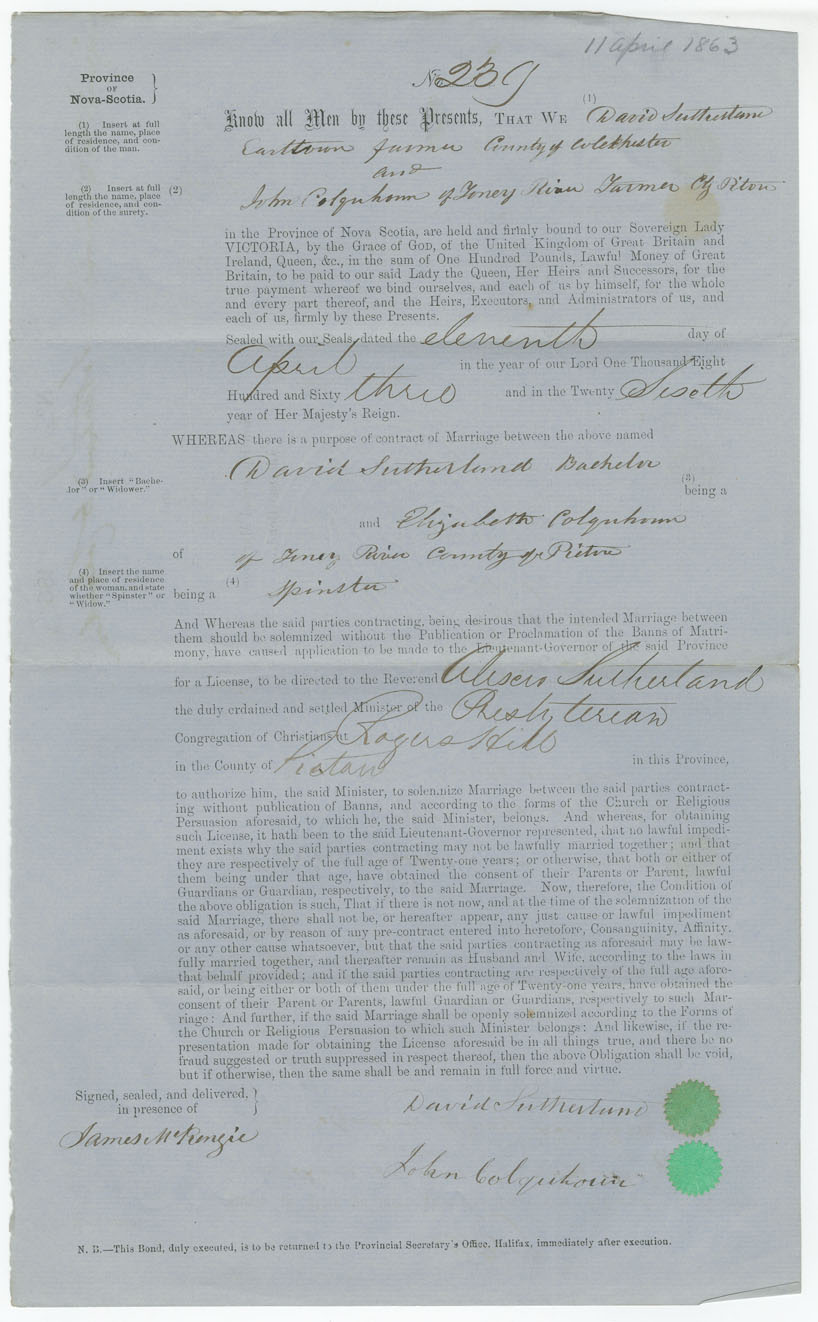 11 April 1863
Province
OF
Nova-Scotia.
No. 239
(1) Insert at full
length the name, place
of residence, and con-
dition of the man.
Know all Men by these Presents, THAT WE (1) David Sutherland
Earltown farmer County of Colchester
and
(2) Insert at full
length the name, place
of residence, and con-
dition of the surety.
(2) John Colquhoun of Toney River Farmer Cty Pictou
in the Province of Nova Scotia, are held and firmly bound to our Sovereign Lady
VICTORIA, by the Grace of GOD, of the United Kingdom of Great Britain and
Ireland, Queen, &c., in the sum of One Hundred Pounds, Lawful Money of Great
Britain, to be paid to our said Lady the Queen, Her Heirs and Successors, for the
true payment whereof we bind ourselves, and each of us by himself, for the whole
and every part thereof, and the Heirs, Executors, and Administrators of us, and
each of us, firmly by these Presents.
Sealed with our Seals, dated the eleventh day of
April in the year of our Lord One Thousand Eight
Hundred and Sixty three and in the Twenty Sixth
year of Her Majesty's Reign.
WHEREAS there is a purpose of contract of Marriage between the above named
David Sutherland Bachelor
(3) Insert "Bache-
lor" or "Widower."
(3)
being a
and Elizabeth Colquhoun
of of Toney River County of Pictou
(4) Insert the name
and place of residence
of the woman, and state
whether "Spinster" or
"Widow."
being a (4) Spinster
And Whereas the said parties contracting, being desirous that the intended Marriage between
them should be solemnized without the Publication or Proclamation of the Banns of Matri-
mony, have caused application to be made to the Lieutenant-Governor of the said Province
for a License, to be directed to the Reverend Sutherland
the duly ordained and settled Minister of the Presbyterian
Congregation of Christians at Rogers Hill
in the County of Pictou in this Province,
to authorize him, the said Minister, to solemnize Marriage between the said parties contract-
ing without publication of Banns, and according to the forms of the Church or Religious
Persuasion aforesaid, to which he, the said Minister, belongs. And whereas, for obtaining
such License, it hath been to the said Lieutenant-Governor represented, that no lawful impedi-
ment exists why the said parties contracting may not be lawfully married together; and that
they are respectively of the full age of Twenty-one years; or otherwise, that both or either of
them being under that age, have obtained the consent of their Parents or Parent, lawful
Guardians or Guardian, respectively, to the said Marriage. Now, therefore, the Condition of
the above obligation is such, That if there is not now, and at the time of the solemnization of the
said Marriage, there shall not be, or hereafter appear, any just cause or lawful impediment
as aforesaid, or by reason of any pre-contract entered into heretofore, Consanguinity, Affinity,
or any other cause whatsoever, but that the said parties contracting as aforesaid may be law-
fully married together, and thereafter remain as Husband and Wife, according to the laws in
that behalf provided; and if the said parties contracting are respectively of the full age afore-
said, or being either or both of them under the full age of Twenty-one years, have obtained the
consent of their Parent or Parents, lawful Guardian or Guardians, respectively to such Mar-
riage: And further, if the said Marriage shall be openly solemnized according to the Forms of
the Church or Religious Persuasion to which such Minister belongs: And likewise, if the re-
presentation made for obtaining the License aforesaid be in all things true, and there be no
fraud suggested or truth suppressed in respect thereof, then the above Obligation shall be void,
but if otherwise, then the same shall be and remain in full force and virtue.
Signed, sealed, and delivered,
in presence of
David Sutherland
James McKenzie
John Colquhoun
N. B.—This Bond, duly executed, is to be returned to the Provincial Secretary's Office, Halifax, immediately after execution.